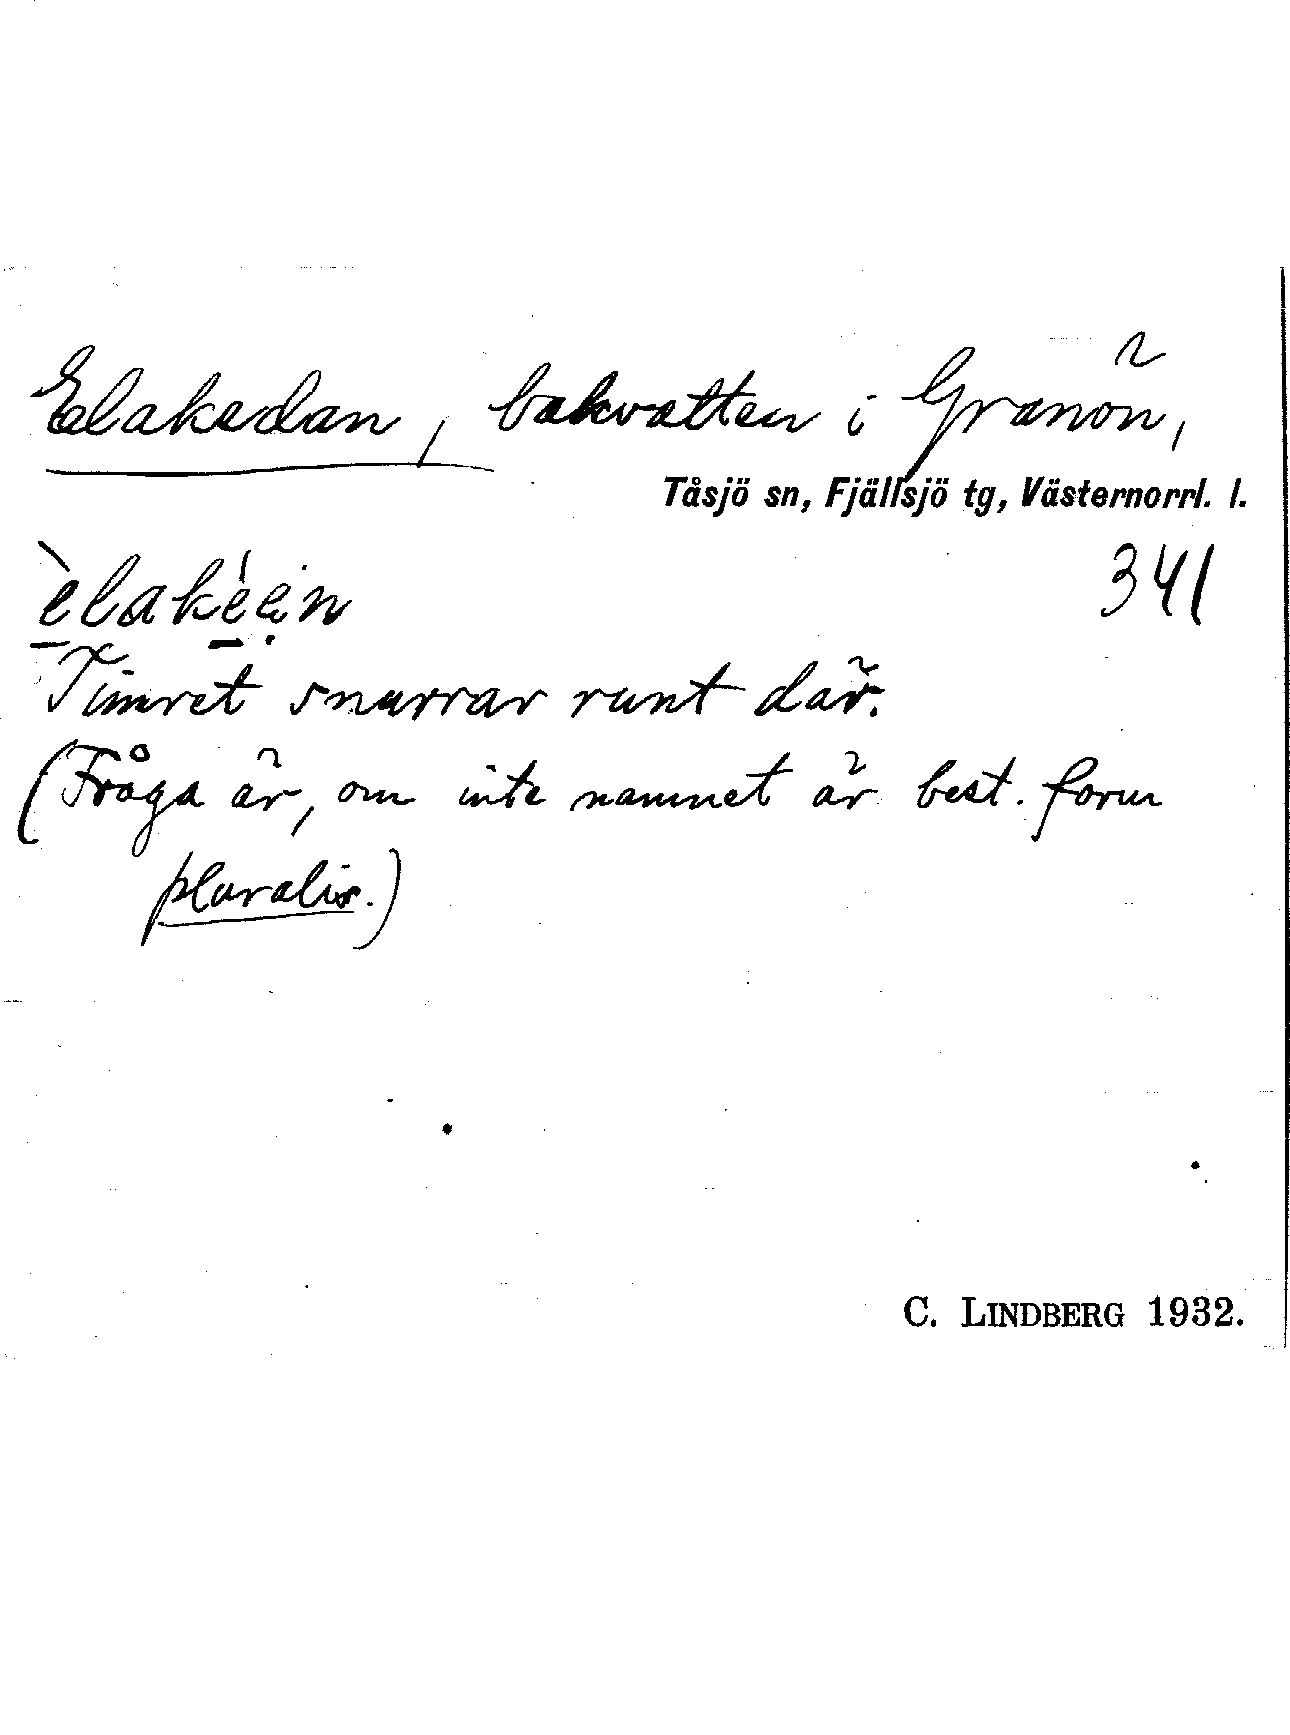 Elakedan, bakvatten i Granön,
Tåsjö sn, Fjällsjö tg, Västernorrl. l.
èlakéėn 341
Timret snurrar runt där.
(Fråga är, om inte namnet är best. form
pluralis.)
C. LINDBERG 1932.